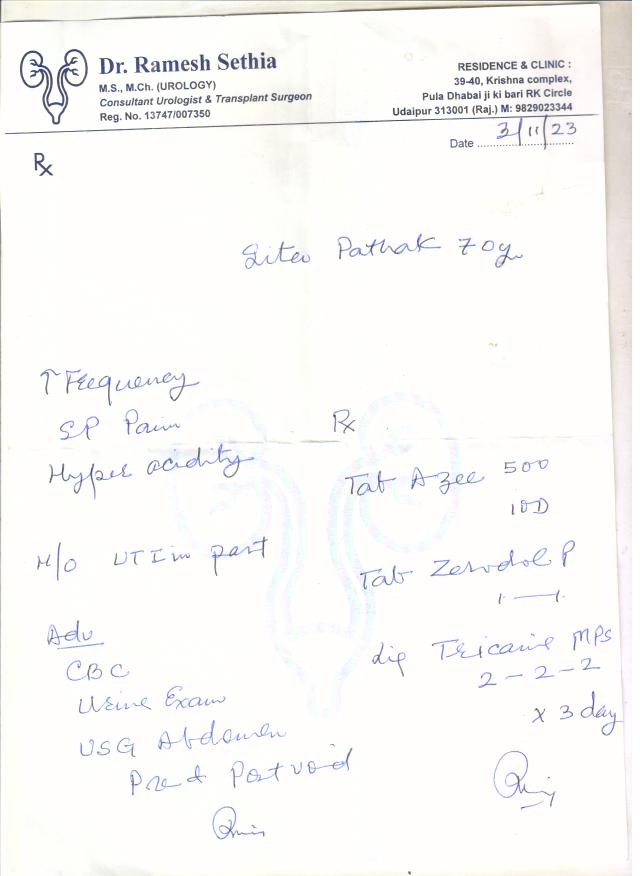 Dr. Ramesh Sethia
M.S., M.Ch. (UROLOGY)
Consultant Urologist & Transplant Surgeon
Reg. No. 13747/007350
RESIDENCE & CLINIC :
39-40, Krishna complex,
Pula Dhabai ji ki bari RK Circle
Udaipur 313001 (Raj.) M: 9829023344
Date 3/11/23
Rx
Pathak 70y
↑ Frequency
SP Pain
Hyper acidity
H/O UTI in past
Adv
CBC
Urine Exam
USG Abdomen
Pre & Post void
Rx
Tab Azee 500
1OD
Tab Zerodol P
1 — 1
liq Tricaine MPS
2 - 2 - 2
x 3 day